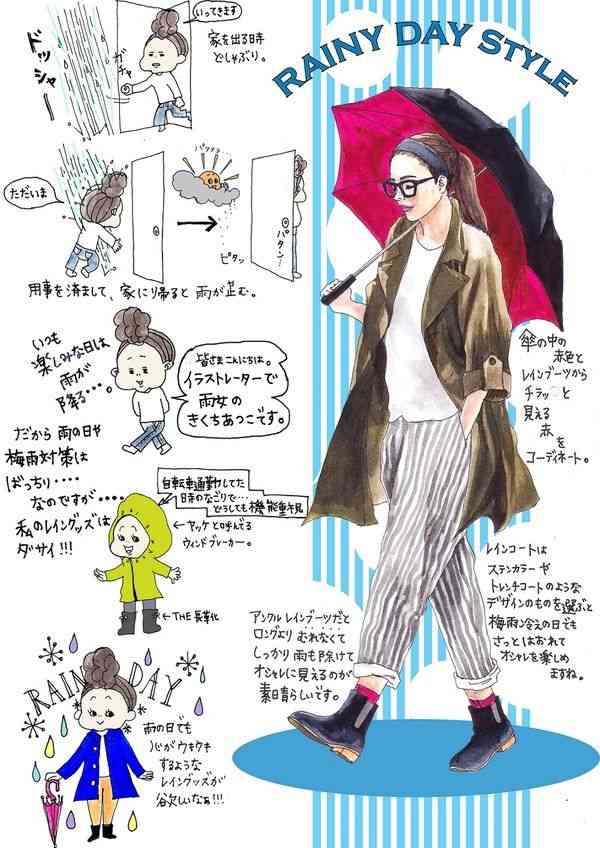 RAINY DAY STYLE
いってきます
ドッシャー
ガチャ
家を出る時
どしゃぶり。
ただいま
パッツアア
ピタッ
パタン!
用事を済まして、家に帰ると雨が止む。
いつも
楽しみな日は
雨が
降る・・・。
皆さまこんにちは。
イラストレーターで
雨女の
きくちあつこです。
だから雨の日や
梅雨対策は
ばっちり・・・・
なのですが・・・・
私のレイングッズは
ダサイ!!!
自転車通勤してた
日時のなごりで…
どうしても機能重視
←ヤッケと呼んでる
ウィンドブレーカー。
←THE長靴
RAINY DAY
雨の日でも
心がウキウキ
するような
レイングッズが
欲しいなぁ!!!
傘の中の
赤色と
レインブーツから
チラッと
見える
赤
を
コーディネート。
レインコートは
ステンカラーや
トレンチコートのような
デザインのものを選ぶと
梅雨冷えの日でも
さっとはおれて
オシャレを楽しめ
ますね。
アンクルレインブーツだと
ロングよりむれなくて
しっかり雨も除けて
オシャレに見えるのが
素晴らしいです。